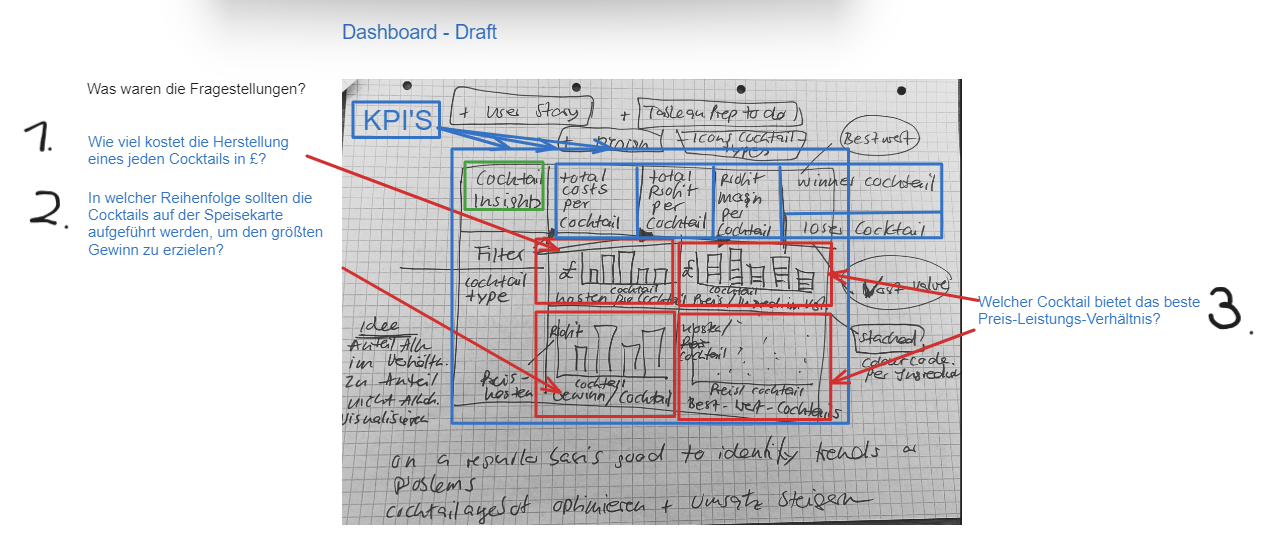 Dashboard - Draft
Was waren die Fragestellungen?
1.
Wie viel kostet die Herstellung
eines jeden Cocktails in £?
2.
In welcher Reihenfolge sollten die
Cocktails auf der Speisekarte
aufgeführt werden, um den größten
Gewinn zu erzielen?
+ User Story
+ Tableau Prep to do
KPI'S
+ Icons Cocktail
types
Best wert
Cocktail
Insights
total
costs
per
cocktail
total
Profit
per
Cocktail
Profit
per
Cocktail
winner cocktail
loser Cocktail
Filter
cocktail
type
£
cocktail
£
cocktail
Welcher Cocktail bietet das beste
Preis-Leistungs-Verhältnis?
3.
Idee
Anteil Alk
im Verhältn.
zu Anteil
nicht Alkoh.
visualisieren
Profit
cocktail
Gewinn/Cocktail
Preis-
kosten
Kosten/
cocktail
Preis/cocktail
Best-Wert-Cocktails
stacked,
colour code
per
on a regular basis good to identify trends or
problems
optimieren + Umsatz steigern